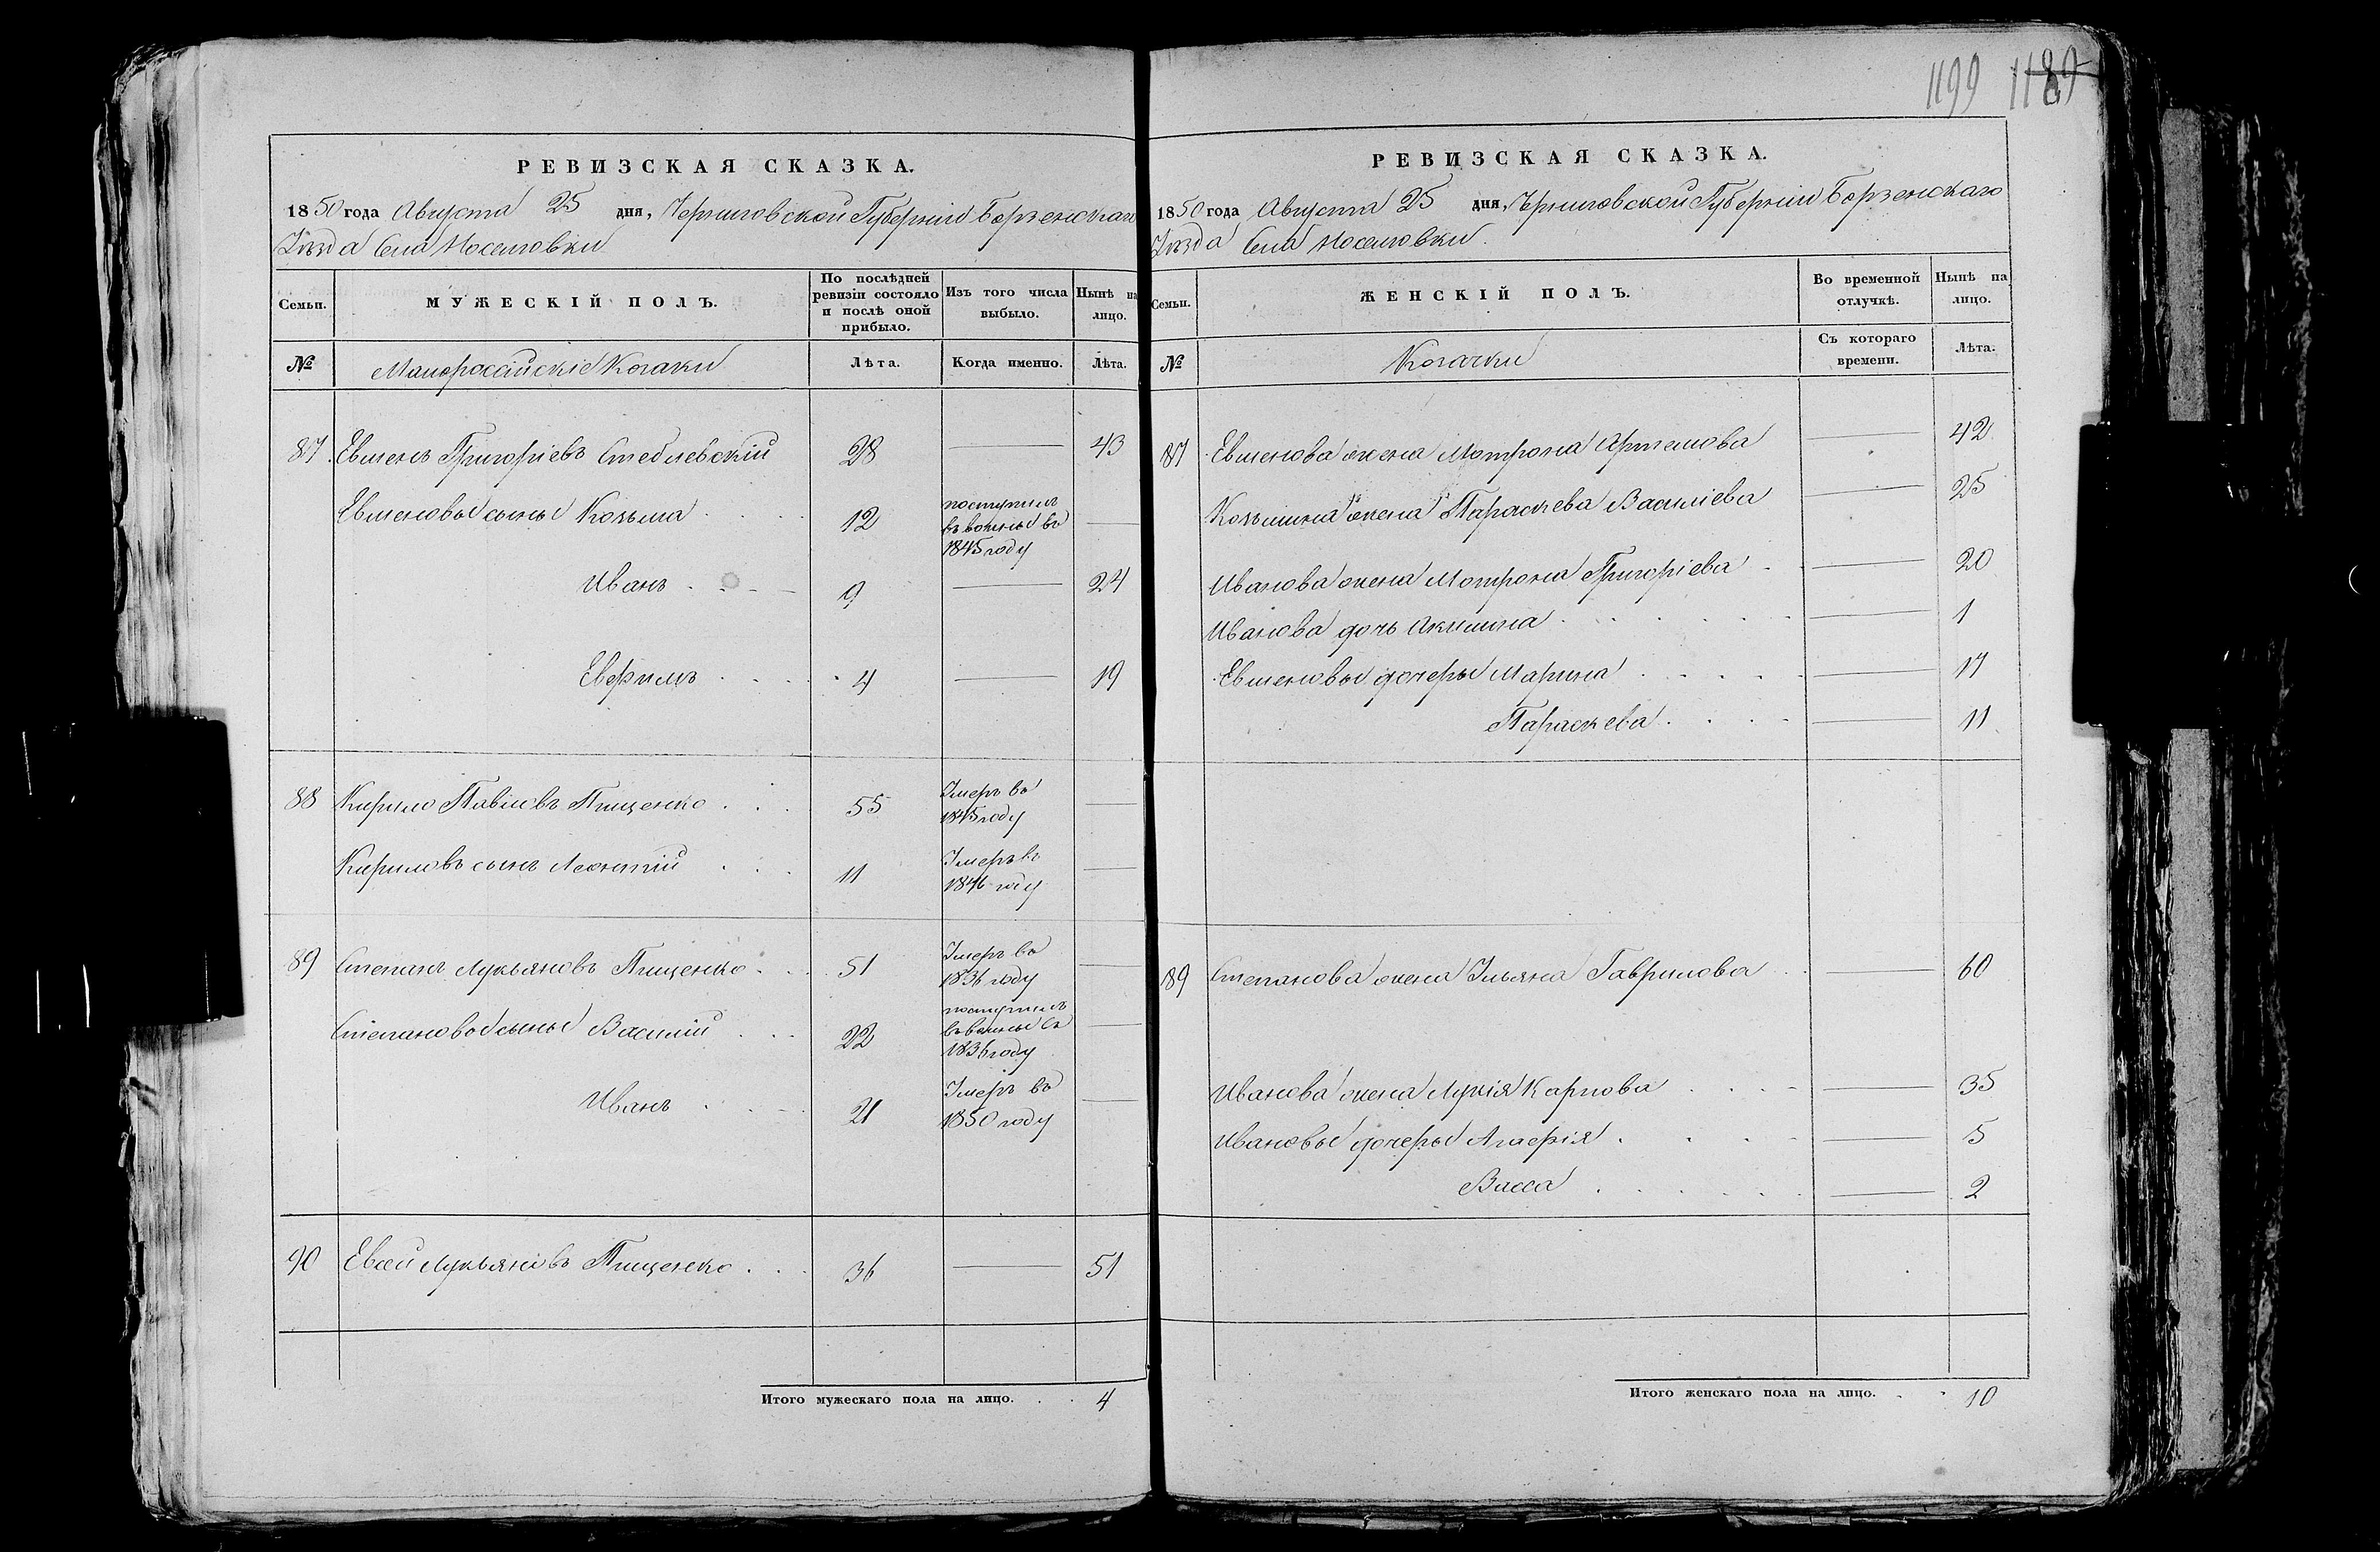 1199 1189
РЕВИЗСКАЯ СКАЗКА.
1850 года Августа 25 дня, Черниговской Губерніи Борзенскаго
Уѣзда Села
МУЖЕСКІЙ ПОЛЪ.
По послѣдней ревизіи состояло и послѣ оной прибыло.
Изъ того числа выбыло.
Нынѣ на лицо.
Семьи.
№ Малороссійскіе Козаки Лѣта. Когда именно. Лѣта.
87 Евменъ Григоріевъ Стеблевскій 28 43
Евменовы сыны Козьма 12 поступилъ
въ военные въ
1845 году
Иванъ 9 24
Евфимъ 4 19
88 Кирило Павловъ Пищенко 55 Умеръ въ
1845 году
Кириловъ сынъ Леонтій 11 Умеръ въ
1846 году
89 Степанъ Лукьяновъ Пищенко 51 Умеръ въ
1836 году
Степановы сыны Василій 22 поступилъ
въ военные въ
1836 году
Иванъ 21 Умеръ въ
1850 году
90 Евсей Лукьяновъ Пищенко 36 51
Итого мужескаго пола на лицо. 4
РЕВИЗСКАЯ СКАЗКА.
1850 года Августа 25 дня, Черниговской Губерніи Борзенскаго
Уѣзда Села
Семьи.
ЖЕНСКІЙ ПОЛЪ.
Во временной отлучкѣ.
Нынѣ на лицо.
№ Козачки Съ котораго времени. Лѣта.
87 Евменова жена Мотрона Артемова 42
Козьмина жена Параскева Василіева 25
Иванова жена Мотрона Григоріева 20
Иванова дочь Акилина 1
Евменовы дочеры Марина 17
Параскева 11
89 Степанова жена Ульяна Гаврилова 60
Иванова жена Лукія Карпова 35
Ивановы дочеры 5
Васса 2
Итого женскаго пола на лицо. 10